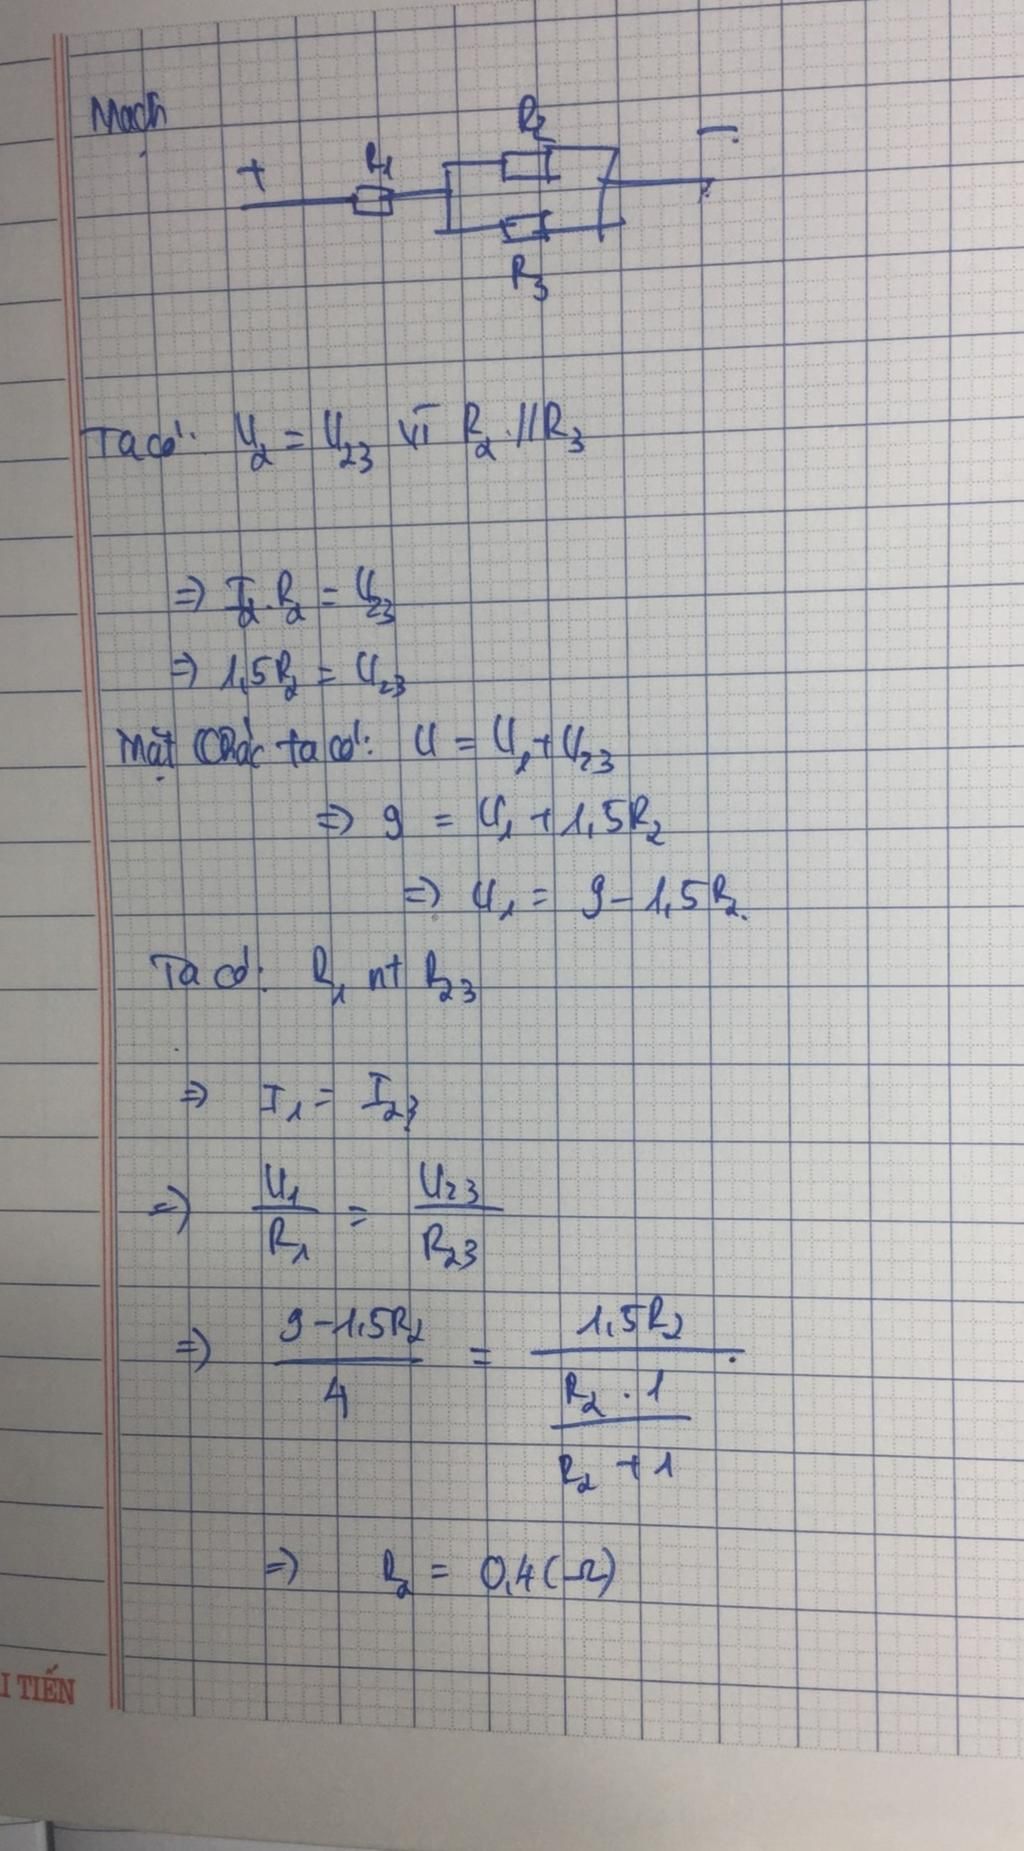 Mạch
R2
+ R1 -
R3
Ta có: U2 = U23 vì R2 // R3
=> I2.R2 = U23
=> 1,5R2 = U23
Mặt khác ta có: U = U1 + U23
=> 9 = U1 + 1,5R2
=> U1 = 9 - 1,5R2.
Ta có: R1 nt R23
=> I1 = I23
=> U1/R1 = U23/R23
=> (9 - 1,5R2)/4 = 1,5R2/((R2 . 1)/(R2 + 1))
=> R2 = 0,4 (Ω)
I TIẾN